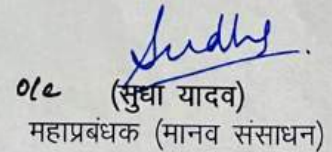 Sudha
o/c (सुधा यादव)
महाप्रबंधक (मानव संसाधन)